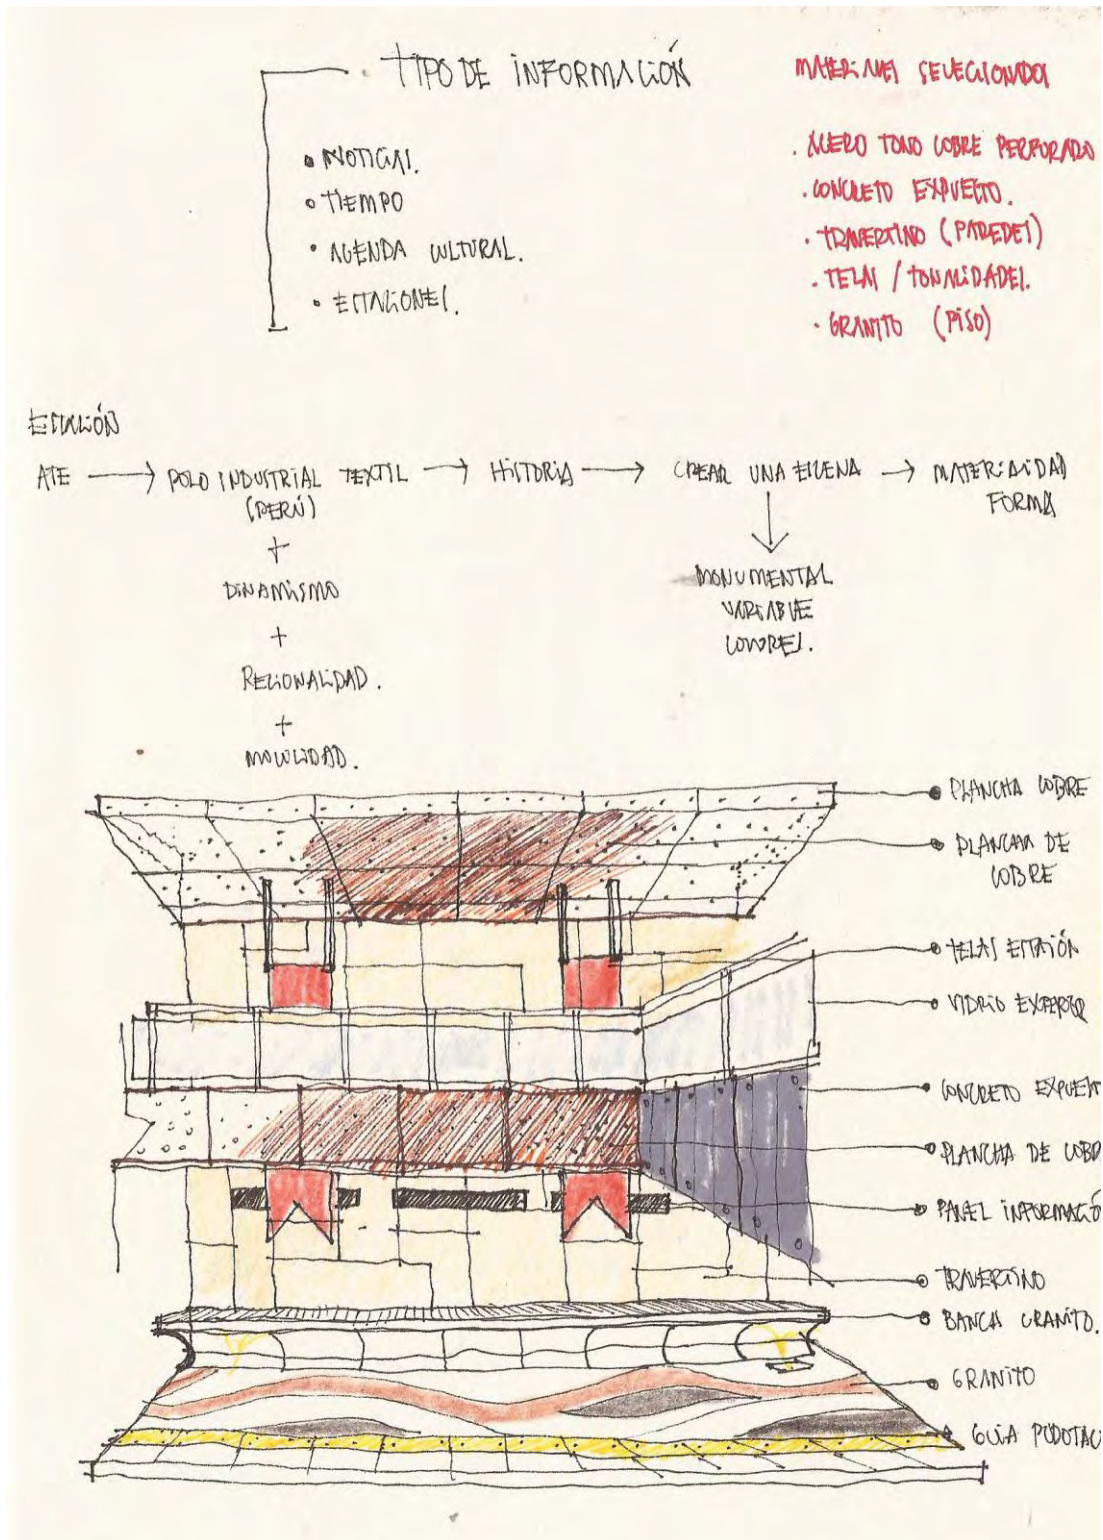 TIPO DE INFORMACIÓN
• NOTICIAS.
• TIEMPO
• AGENDA CULTURAL.
• ESTACIONES.
MATERIALES SELECIONADOS
. ACERO TONO COBRE PERFORADO
. CONCRETO EXPUESTO.
. TRAVERTINO (PAREDES)
. TELAS / TONALIDADES.
. GRANITO (PISO)
ESTACIÓN
ATE → POLO INDUSTRIAL TEXTIL → HISTORIA → CREAR UNA ESCENA → MATERIALIDAD
(PERÚ)
FORMA
+
DINAMISMO
+
+
MONUMENTAL
VARIABLE
COLORES.
PLANCHA COBRE
PLANCHAS DE
COBRE
TELAS ESTACIÓN
VIDRIO EXTERIOR
CONCRETO EXPUEST
PLANCHA DE COBR
PANEL INFORMACIÓ
TRAVERTINO
BANCA GRANITO.
GRANITO
GUÍA PODOTAC